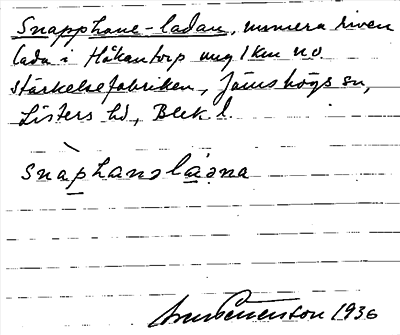 Snapphane-ladan, numera riven
lada i Håkantorp ung 1 km no
stärkelsefabriken, Jämshögs sn,
Listers hd, Blek l.
snàphansláǝna
1936